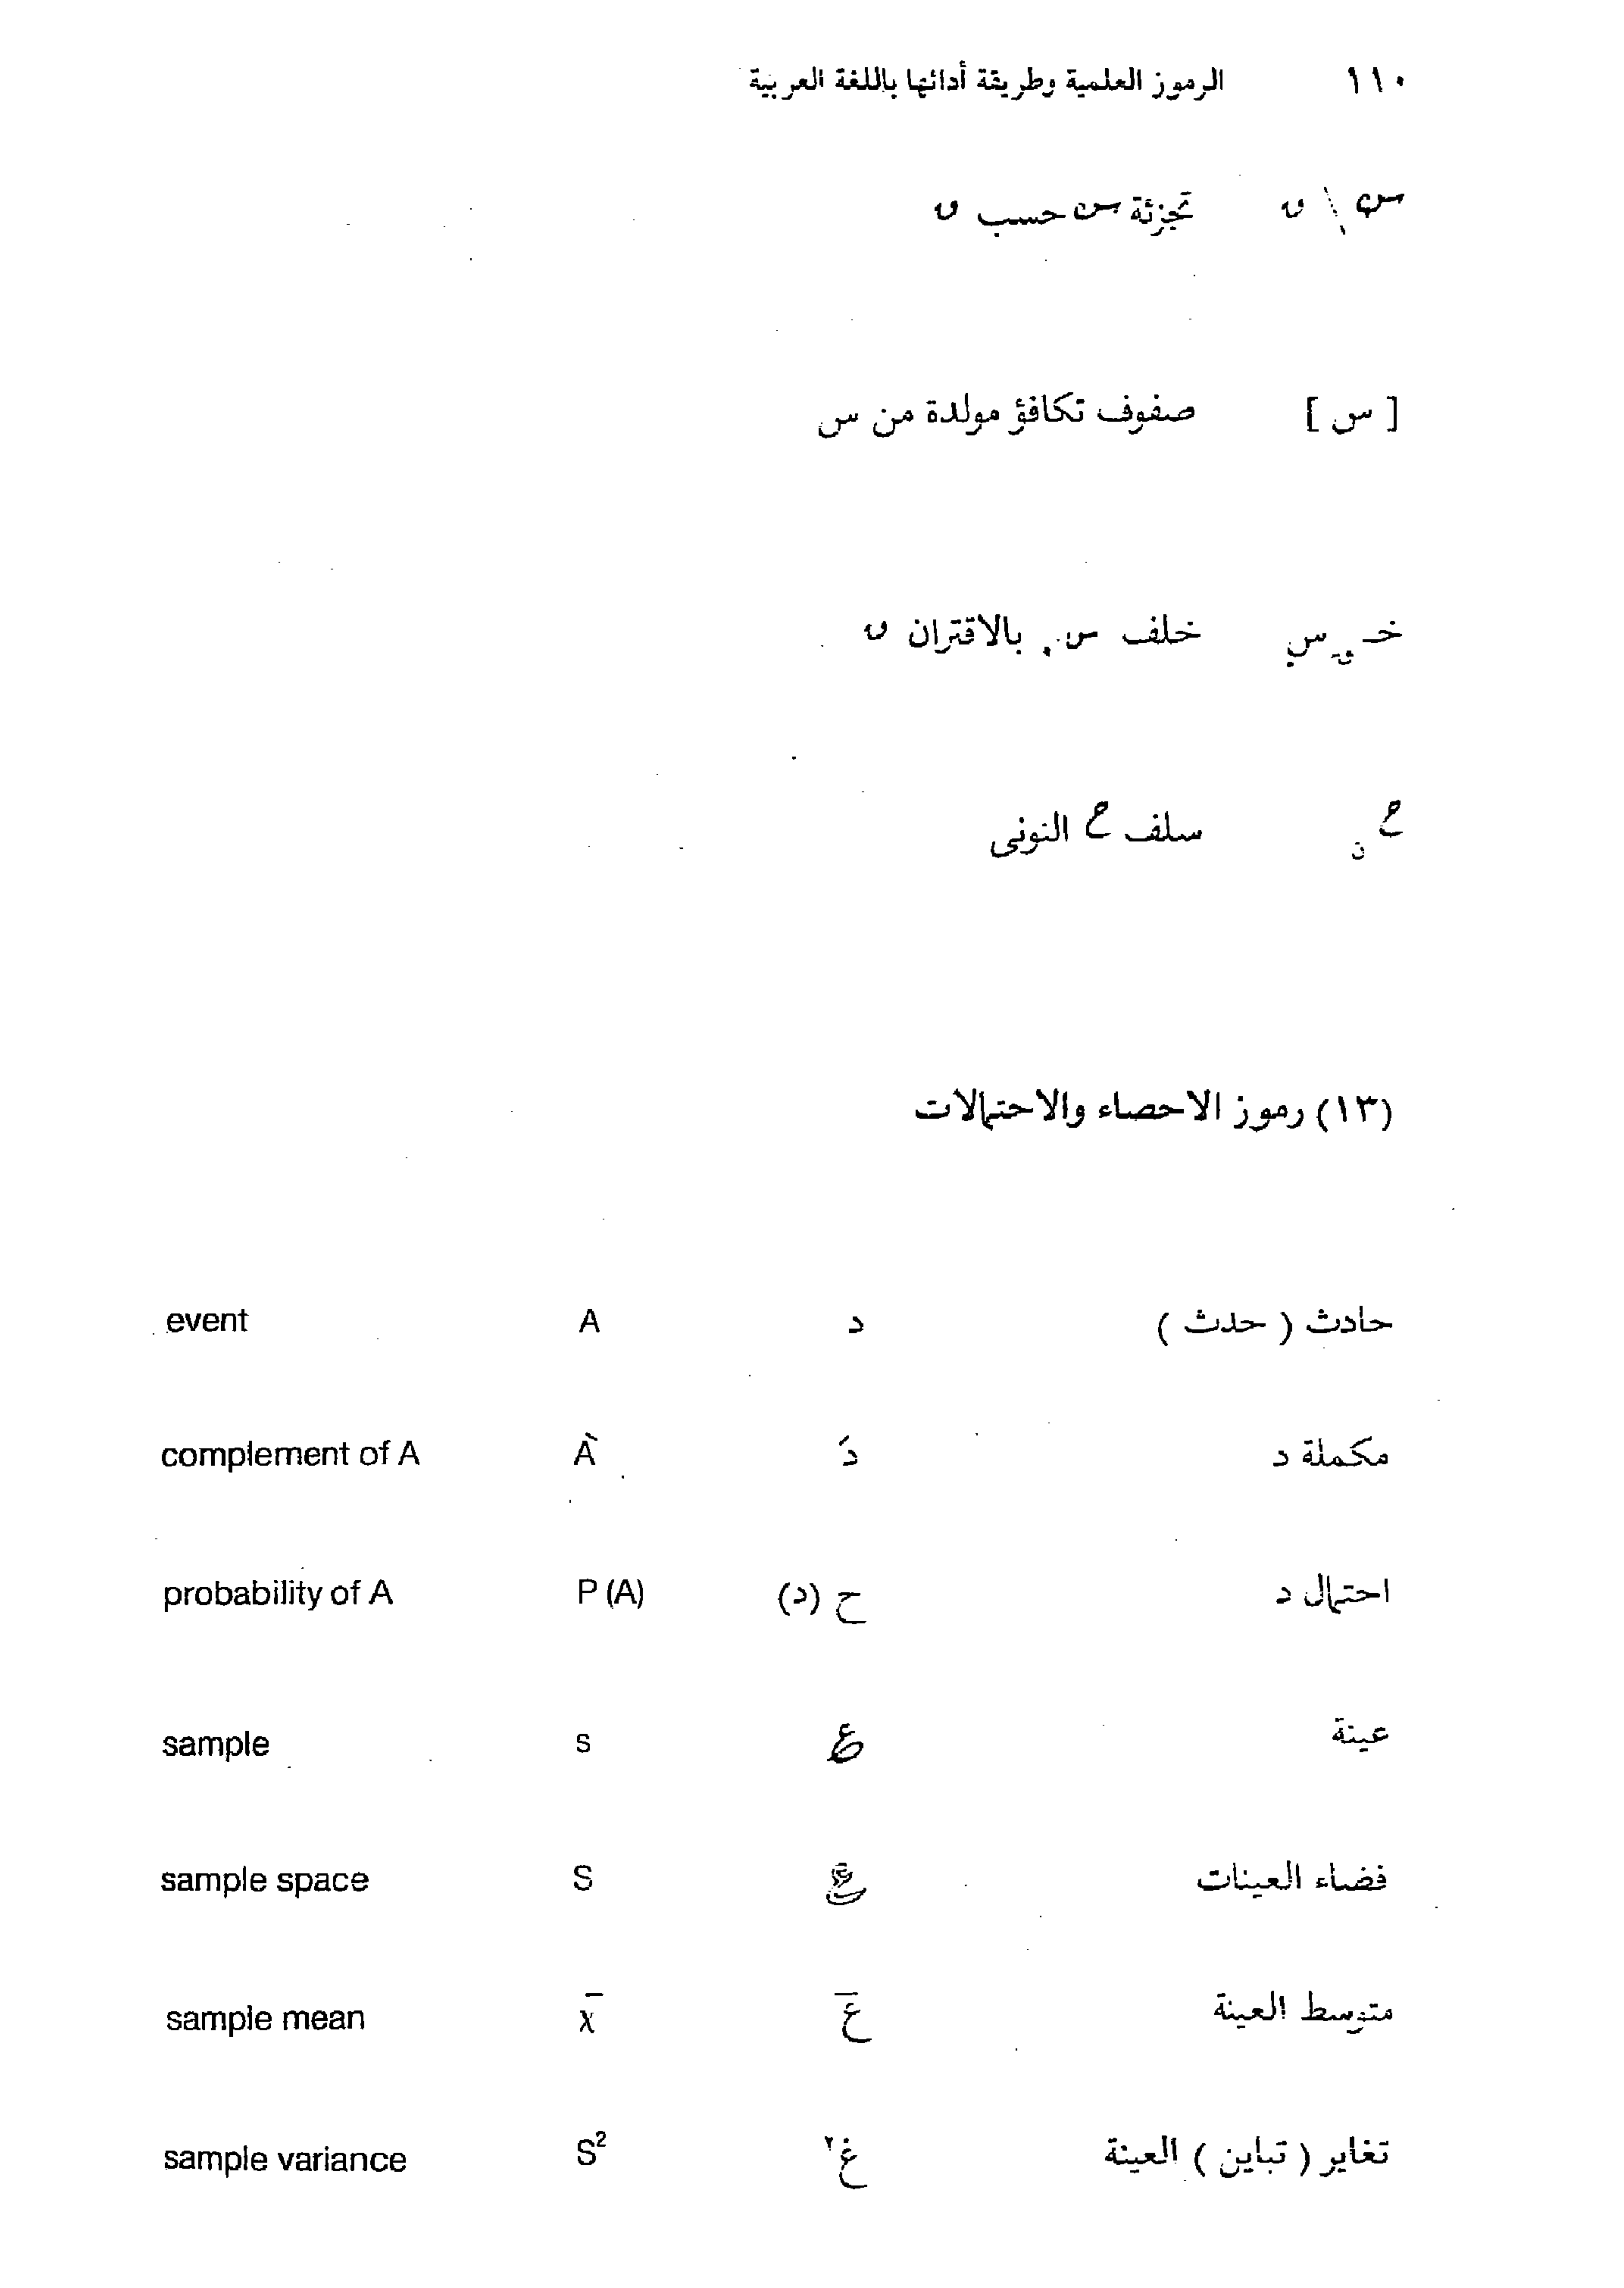 ١١٠ الرموز العلمية وطريقة أدائها باللغة العربية
س \ ں تجزئة س حسب ں
[ س ] صفوف تكافؤ مولدة من س
خـ س خلف س بالاقتران ں
ح ن سلف ح النونى
(١٣) رموز الاحصاء والاحتمالات
حادث ( حدث ) د A event
مكملة د دَ À complement of A
احتمال د ح (د) P (A) probability of A
عينة s sample
فضاء العينات S sample space
متوسط العينة x̄ sample mean
تغاير ( تباين ) العينة غ٢ S² sample variance